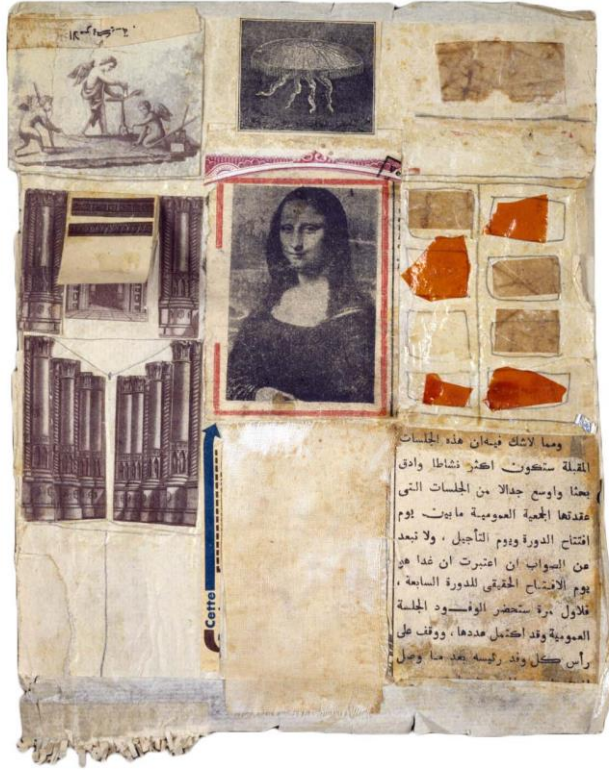 Cette
ومما لاشك فيهان هذه الجلسات
المقبلة ستكون اكثر نشاطا وادق
بحثا واوسع جدالا من الجلسات التى
عقدتها الجمعية العمومية مابين يوم
افتتاح الدورة ويوم التأجيل ، ولا نبعد
عن الصواب ان اعتبرت ان غدا هو
يوم الافتتاح الحقيقى للدورة السابعة ،
فلاول مرة ستحضر الوفود الجلسة
العمومية وقد اكتمل عددها ، ووقف على
رأس كل وفد رئيسه بعد ما وصل